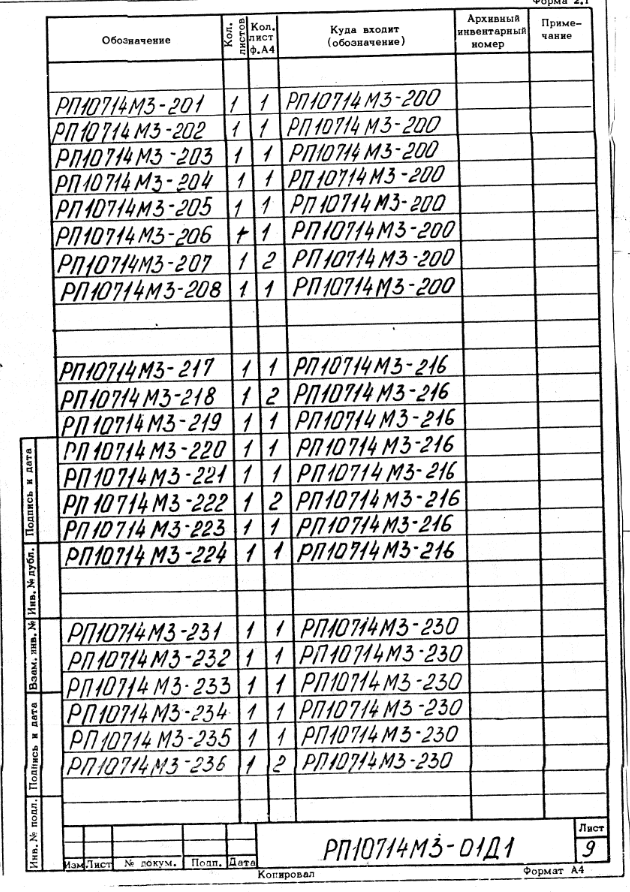 Форма 2.1
Обозначение Кол. листов Кол. лист ф.А4 Куда входит (обозначение) Архивный инвентарный номер Приме-чание
РП10714М3-201 1 1 РП10714М3-200
РП10714М3-202 1 1 РП10714М3-200
РП10714М3-203 1 1 РП10714М3-200
РП10714М3-204 1 1 РП10714М3-200
РП10714М3-205 1 1 РП10714М3-200
РП10714М3-206 1 1 РП10714М3-200
РП10714М3-207 1 2 РП10714М3-200
РП10714М3-208 1 1 РП10714М3-200
РП10714М3-217 1 1 РП10714М3-216
РП10714М3-218 1 2 РП10714М3-216
РП10714М3-219 1 1 РП10714М3-216
РП10714М3-220 1 1 РП10714М3-216
РП10714М3-221 1 1 РП10714М3-216
РП10714М3-222 1 2 РП10714М3-216
РП10714М3-223 1 1 РП10714М3-216
РП10714М3-224 1 1 РП10714М3-216
РП10714М3-231 1 1 РП10714М3-230
РП10714М3-232 1 1 РП10714М3-230
РП10714М3-233 1 1 РП10714М3-230
РП10714М3-234 1 1 РП10714М3-230
РП10714М3-235 1 1 РП10714М3-230
РП10714М3-236 1 2 РП10714М3-230
Подпись и дата
Инв. № дубл.
Взам. инв. №
Подпись и дата
Инв. № подл.
Изм Лист № докум. Подп. Дата
РП10714М3-01Д1
Лист
9
Копировал
Формат А4